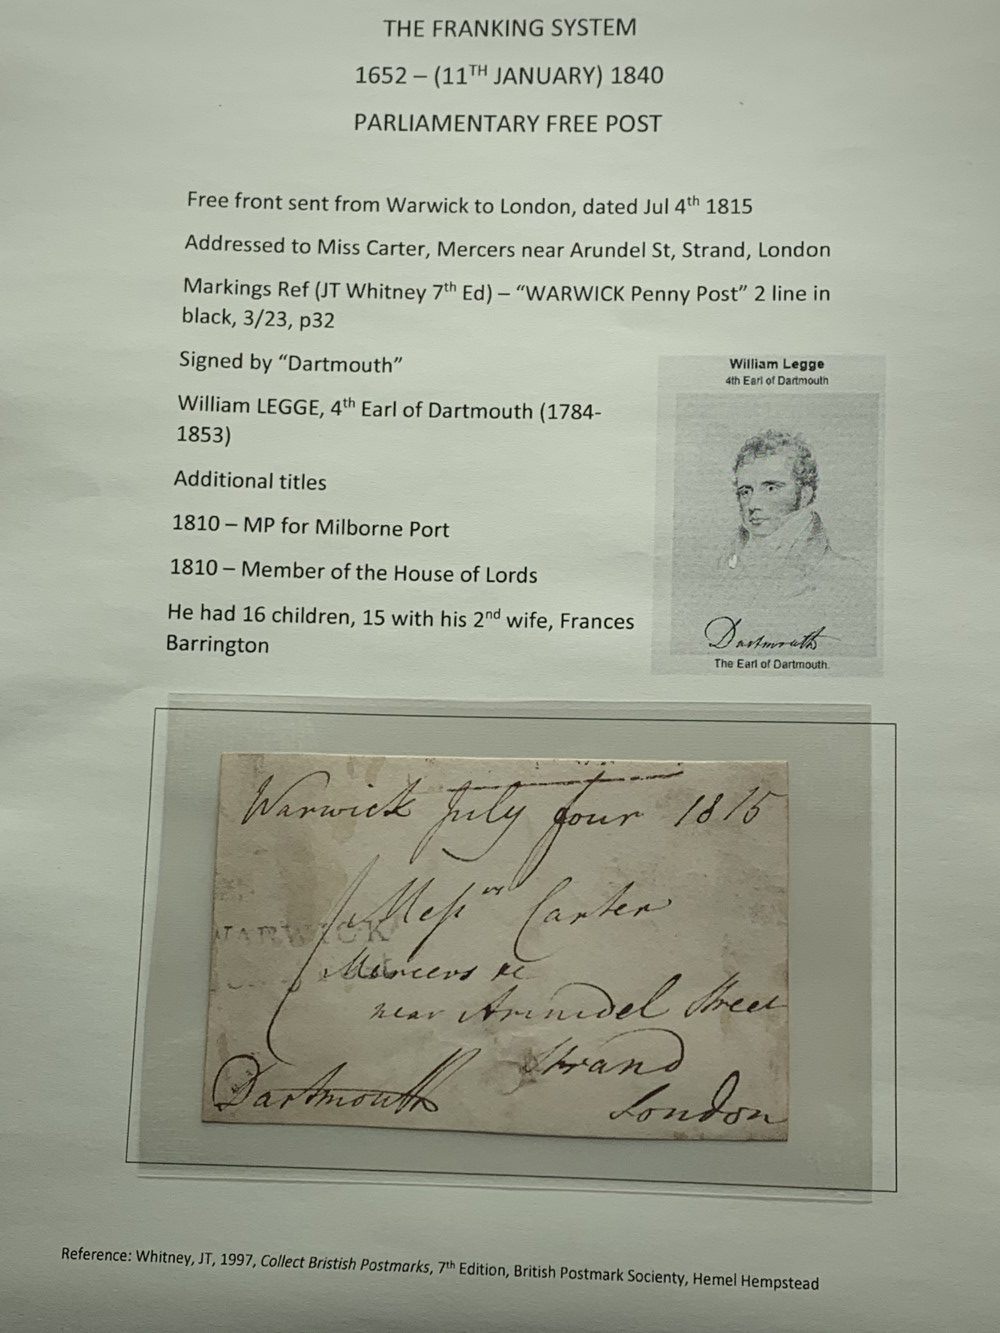 THE FRANKING SYSTEM
1652 – (11TH JANUARY) 1840
PARLIAMENTARY FREE POST
Free front sent from Warwick to London, dated Jul 4th 1815
Addressed to Miss Carter, Mercers near Arundel St, Strand, London
Markings Ref (JT Whitney 7th Ed) – “WARWICK Penny Post” 2 line in
black, 3/23, p32
Signed by “Dartmouth”
William LEGGE, 4th Earl of Dartmouth (1784-
1853)
Additional titles
1810 – MP for Milborne Port
1810 – Member of the House of Lords
He had 16 children, 15 with his 2nd wife, Frances
Barrington
William Legge
4th Earl of Dartmouth
Dartmouth
The Earl of Dartmouth.
Warwick July four 1815
Messrs Carter
WARWICK
Mercers &c
near Arundel Street
Strand
Dartmouth
London
Reference: Whitney, JT, 1997, Collect Bristish Postmarks, 7th Edition, British Postmark Socienty, Hemel Hempstead